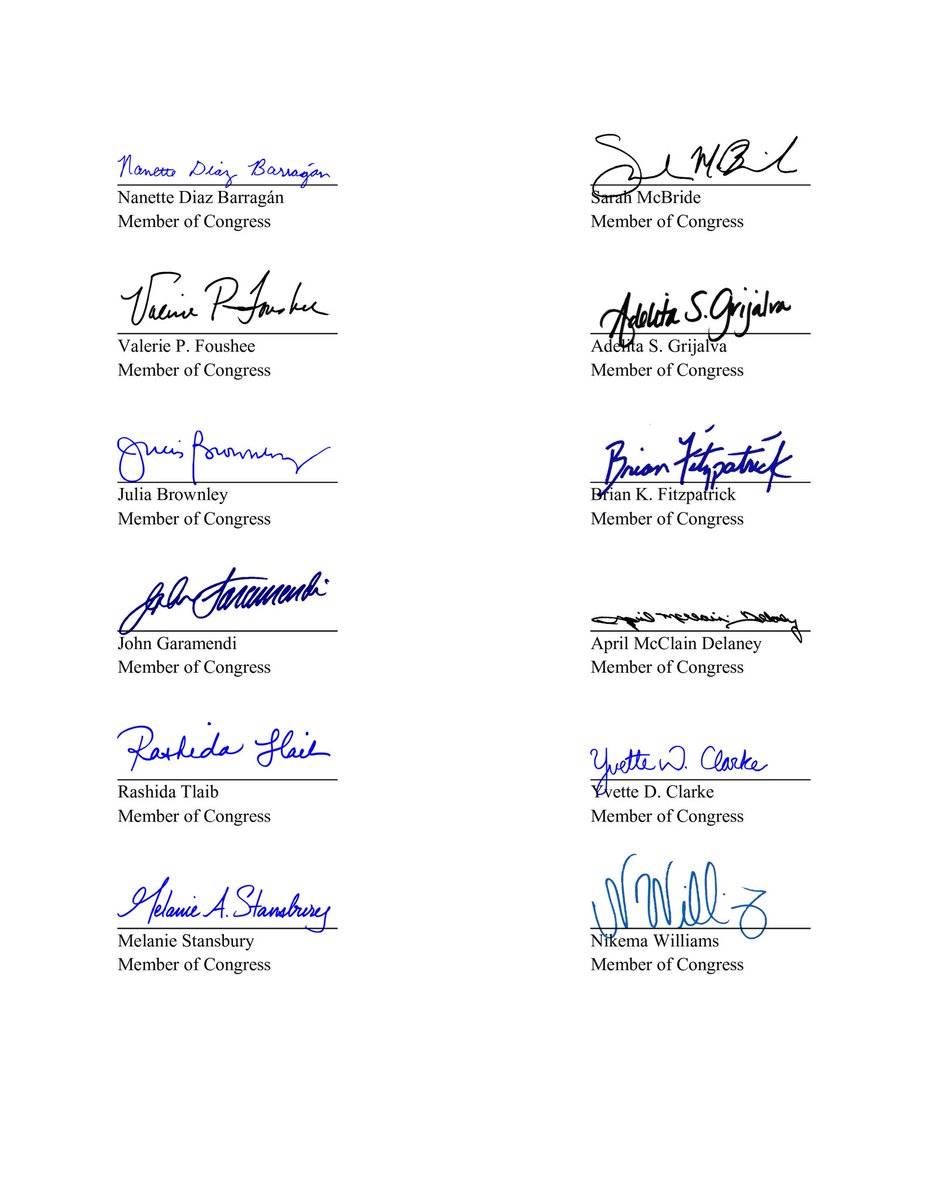 Nanette Diaz Barragán
Nanette Diaz Barragán
Member of Congress
Sarah McBride
Member of Congress
Valerie P. Foushee
Valerie P. Foushee
Member of Congress
Adelita S. Grijalva
Adelita S. Grijalva
Member of Congress
Julia Brownley
Member of Congress
Brian Fitzpatrick
Brian K. Fitzpatrick
Member of Congress
John Garamendi
John Garamendi
Member of Congress
April McClain Delaney
April McClain Delaney
Member of Congress
Rashida Tlaib
Rashida Tlaib
Member of Congress
Yvette D. Clarke
Yvette D. Clarke
Member of Congress
Melanie A. Stansbury
Melanie Stansbury
Member of Congress
Nikema Williams
Member of Congress